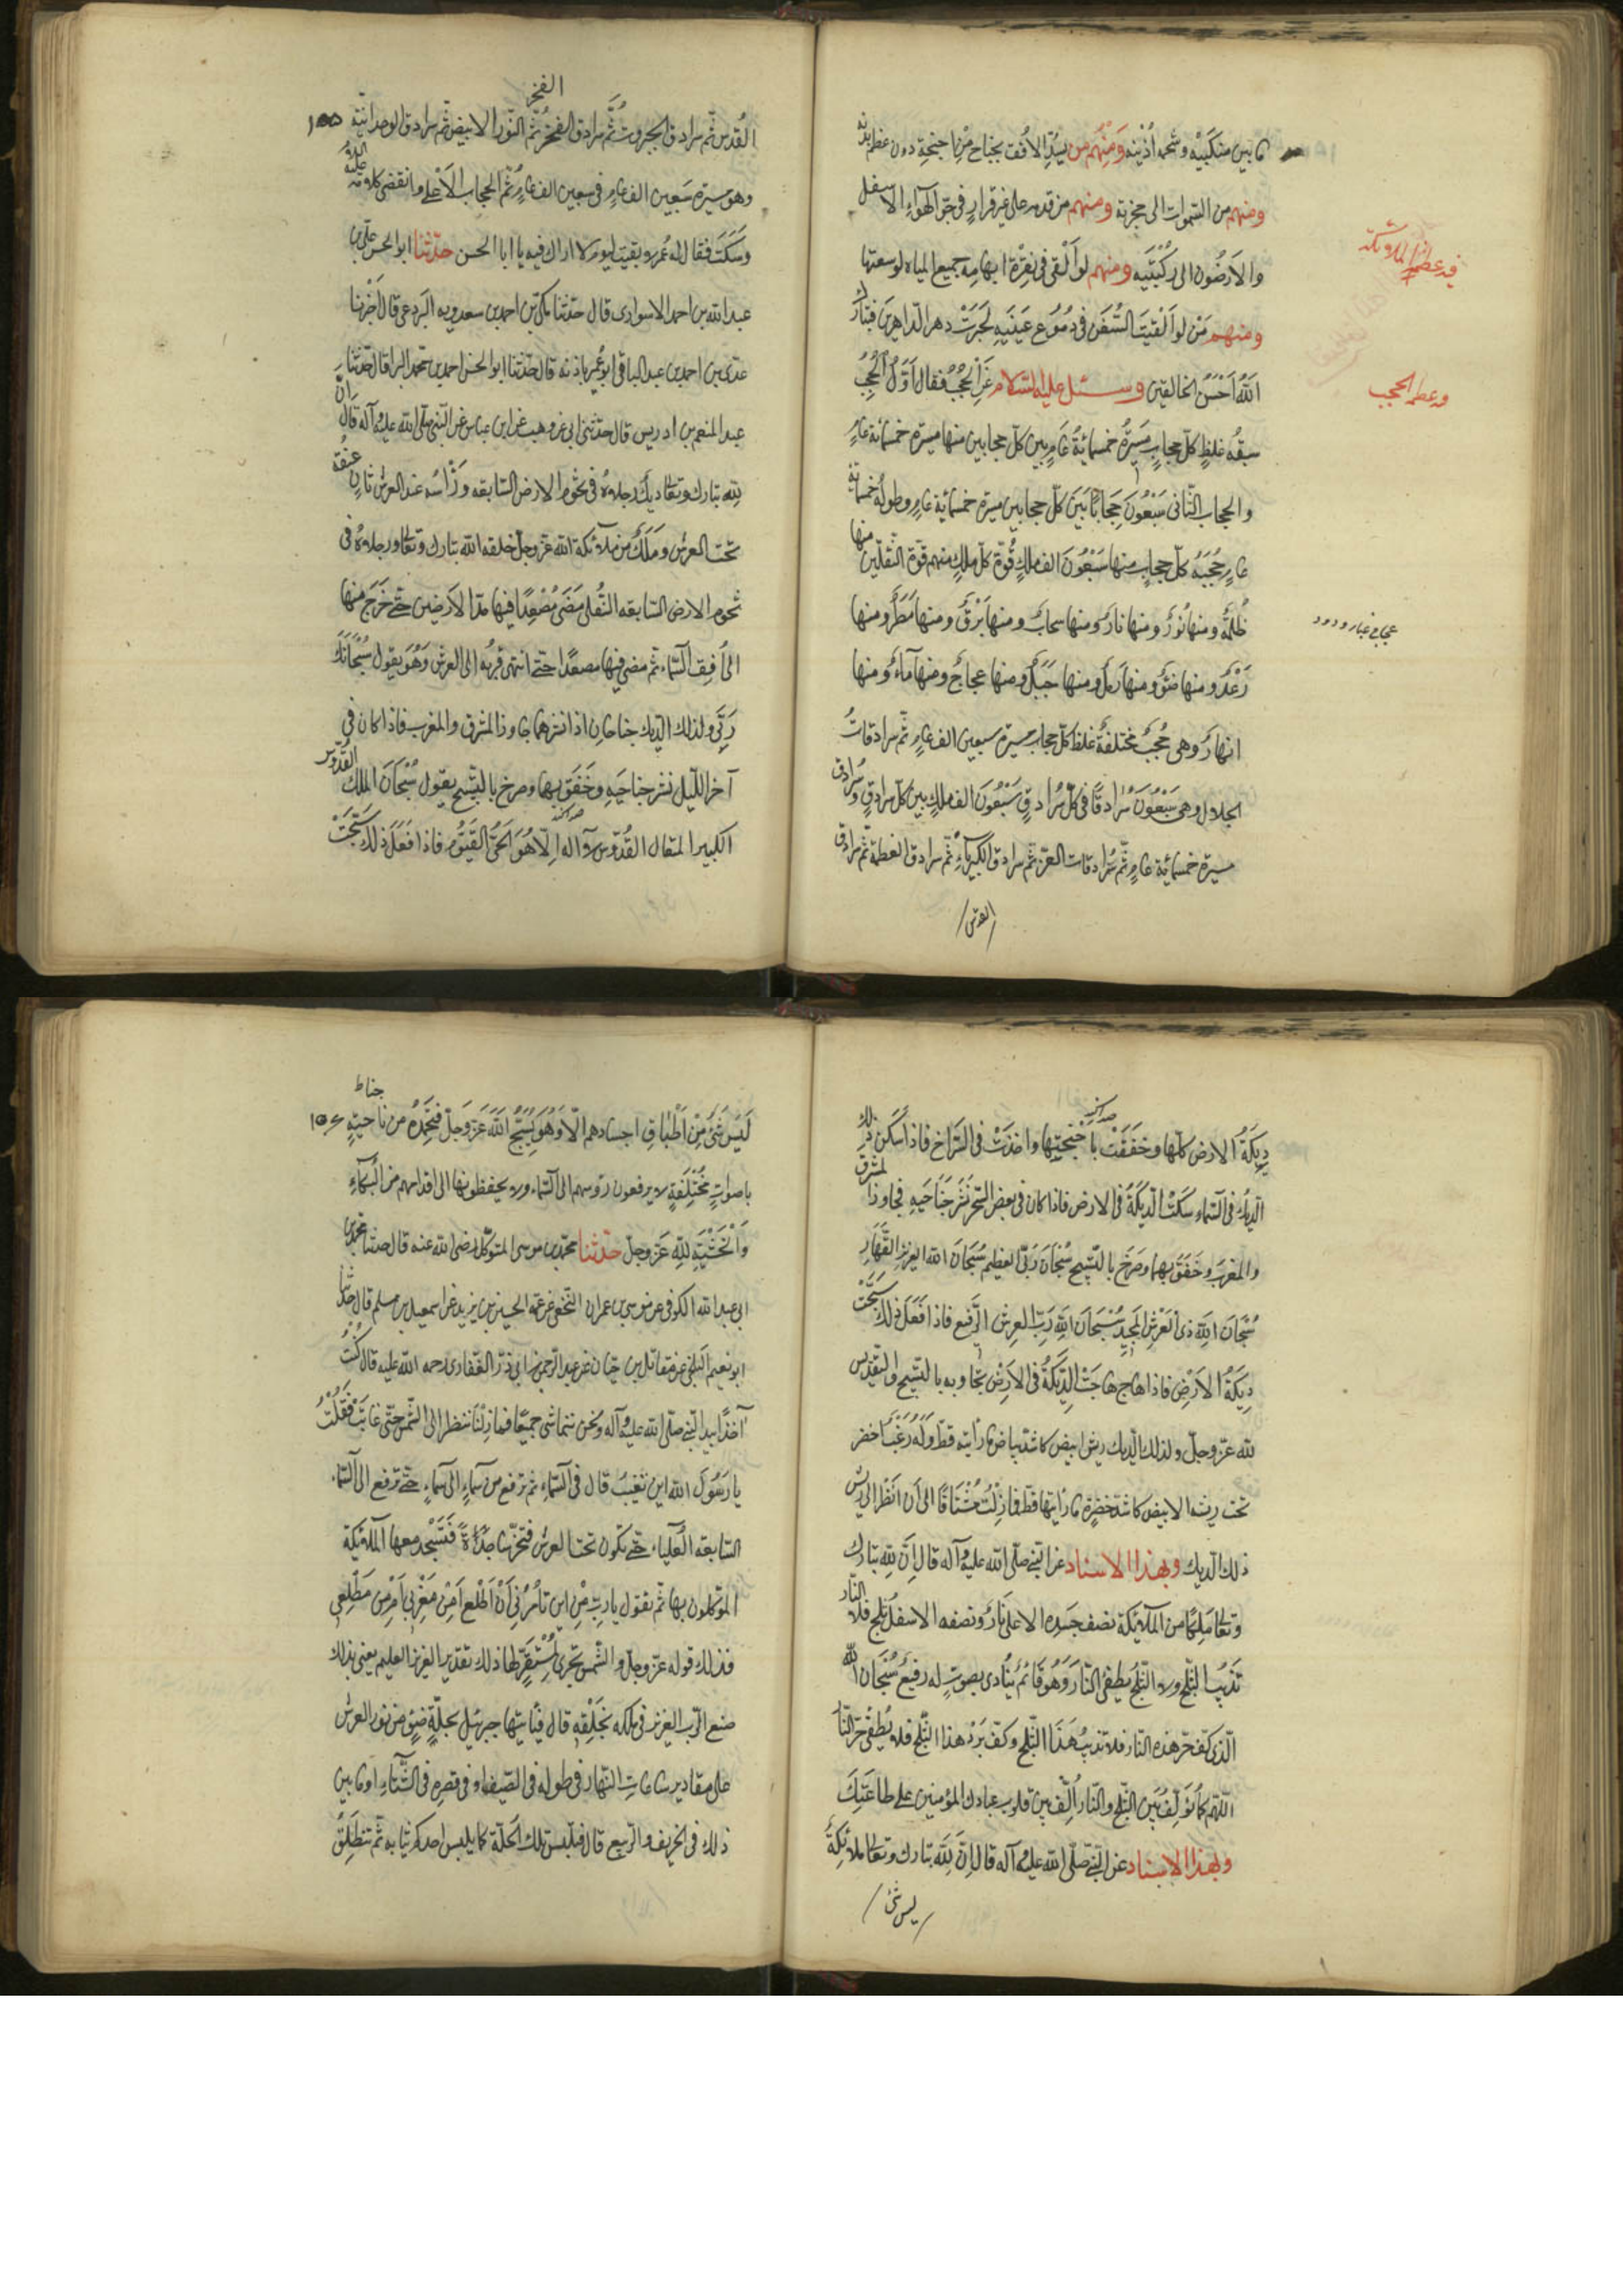 ما بين منكبيه وشحمة أذنيه ومنهم من يسدّ الأفق بجناح من أجنحته دون عظم بدنه
ومنهم من السموات الى حجزته ومنهم من قدمه على غير قرار في جوّ الهواء الاسفل
في عظم الملائكة
والارضون الى ركبتيه ومنهم لو ألقي في نقرة ابهامه جميع المياه لوسعتها
ومنهم من لو ألقيت السّفن في دموع عينيه لجرت دهر الداهرين فتبارك
الله أحسن الخالقين وسئل عليه السلام عن الحجب فقال أوّل الحجب
في عظم الحجب
سبعة غلظ كلّ حجاب مسيرة خمسمائة عام بين كلّ حجابين منها مسيرة خمسمائة عام
والحجاب الثّاني سبعون حجابا بين كلّ حجابين مسيرة خمسمائة عام وطوله خمسمائة
عام حجبة كلّ حجاب منها سبعون الف ملك قوّة كلّ ملك منهم قوّة الثّقلين منها
ظلمة ومنها نور ومنها نار ومنها سحاب ومنها برق ومنها مطر ومنها
عجاج غبار ودود
رعد ومنها ضوء ومنها رمل ومنها جبل ومنها عجاج ومنها ماء ومنها
انهار وهي حجب مختلفة غلظ كلّ حجاب مسيرة سبعين الف عام ثمّ سرادقات
الجلال وهي سبعون سرادقا في كلّ سرادق سبعون الف ملك بين كلّ سرادق وسرادق
مسيرة خمسمائة عام ثمّ سرادقات العزّ ثمّ سرادق الكبرياء ثمّ سرادق العظمة ثمّ سرادق
القدس
الفخر
القدس ثمّ سرادق الجبروت ثمّ سرادق الفخر ثمّ النّور الابيض ثمّ سرادق الوحدانيّة ١٥٥
وهو مسيرة سبعين الف عام في سبعين الف عام ثمّ الحجاب الأعلى وانقضى كلامه عليه السلام
وسكت فقال له عمر لا بقيت ليوم لا اراك فيه يا ابا الحسن حدّثنا ابو الحسن علي بن
عبد الله بن احمد الاسواري قال حدّثنا مكّي بن احمد بن سعدويه البردعي قال أخبرنا
عدي بن احمد بن عبد الباقي ابو عمير باذنه قال حدّثنا ابو الحسن احمد بن محمّد البرا قال حدّثنا
عبد المنعم بن ادريس قال حدّثني ابي عن وهب عن ابن عباس عن النّبي صلّى الله عليه وآله قال انّ
لله تبارك وتعالى ديكا رجلاه في تخوم الارض السّابعة ورأسه عند العرش ثاني عنقه
تحت العرش وملك من ملائكة الله عزّ وجلّ خلقه الله تبارك وتعالى ورجلاه في
تخوم الارض السّابعة السّفلى مضى مصعدا فيها مدّ الارضين حتّى خرج منها
الى أفق السّماء ثمّ مضى فيها مصعدا حتّى انتهى قرنه الى العرش وهو يقول سبحانك
ربّي ولذلك الدّيك جناحان اذا نشرهما جاوزا المشرق والمغرب فاذا كان في
آخر اللّيل نشر جناحيه وخفق بهما وصرخ بالتّسبيح يقول سبحان الملك القدّوس
الكبير المتعال القدّوس لا اله الّا هو الحيّ القيّوم فاذا فعل ذلك سبّحت
ديكة الارض كلّها وخفقت باجنحتها واخذت في الصّراخ فاذا سكن ذلك
الدّيك في السّماء سكتت الدّيكة في الارض فاذا كان في بعض السّحر نشر جناحيه فجاوزا المشرق
والمغرب وخفق بهما وصرخ بالتّسبيح سبحان ربّي العظيم سبحان الله العزيز القهّار
سبحان الله ذي العرش المجيد سبحان الله ربّ العرش الرّفيع فاذا فعل ذلك سبّحت
ديكة الأرض فاذا هاج هاجت الدّيكة في الارض تجاوبه بالتّسبيح والتّقديس
لله عزّ وجلّ ولذلك الدّيك ريش ابيض كاشدّ بياض ما رأيته قطّ وله زغب أخضر
تحت ريشه الابيض كاشدّ خضرة ما رأيتها قطّ فما زلت مشتاقا الى أن أنظر الى ريش
ذلك الدّيك وبهذا الاسناد عن النّبي صلّى الله عليه وآله قال إنّ لله تبارك
وتعالى ملكا من الملائكة نصف جسده الاعلى نار ونصفه الاسفل ثلج فلا النّار
تذيب الثّلج ولا الثّلج يطفئ النّار وهو قائم ينادي بصوت له رفيع سبحان الله
الّذي كفّ حرّ هذه النّار فلا تذيب هذا الثّلج وكفّ برد هذا الثّلج فلا يطفئ حرّ النّار
اللّهم كما تؤلّف بين الثّلج والنّار ألّف بين قلوب عبادك المؤمنين على طاعتك
وبهذا الاسناد عن النّبي صلّى الله عليه وآله قال إنّ لله تبارك وتعالى ملائكة
ليس شئ
ليس شئ من أطباق اجسادهم الّا وهو يسبّح الله عزّ وجلّ فيحمده من ناحيته ١٥٦
باصوات مختلفة لا يرفعون رؤسهم الى السّماء ولا يخفضونها الى اقدامهم من البكاء
والخشية لله عزّ وجلّ حدّثنا محمّد بن موسى المتوكّل رضي الله عنه قال حدّثنا محمّد بن
ابي عبد الله الكوفي عن موسى بن عمران النّخعي عن عمّه الحسين بن يزيد عن اسمعيل بن مسلم قال حدّثنا
ابو نعيم البلخي عن مقاتل بن حيّان عن عبد الرّحمن عن ابي ذرّ الغفاري رحمه الله عليه قال كنت
آخذا بيد النّبي صلّى الله عليه وآله ونحن نتماشى جميعا فما زلنا ننظر الى الشّمس حتّى غابت فقلت
يا رسول الله اين تغيب قال في السّماء ثم ترفع من سماء الى سماء حتّى ترفع الى السّماء
السّابعة العلياء حتّى تكون تحت العرش فتخرّ ساجدة فتسجد معها الملائكة
الموكّلون بها ثمّ تقول يا ربّ من اين تأمرني أن أطلع أمن مغربي أم من مطلعي
فذلك قوله عزّ وجلّ والشّمس تجري لمستقرّ لها ذلك تقدير العزيز العليم يعني بذلك
صنع الرّب العزيز في ملكه بخلقه قال فيأتيها جبرئيل بحلّة ضوء من نور العرش
على مقادير ساعات النّهار في طوله في الصّيف او في قصره في الشّتاء او ما بين
ذلك في الخريف والرّبيع قال فتلبس تلك الحلّة كما يلبس احدكم ثيابه ثمّ تنطلق